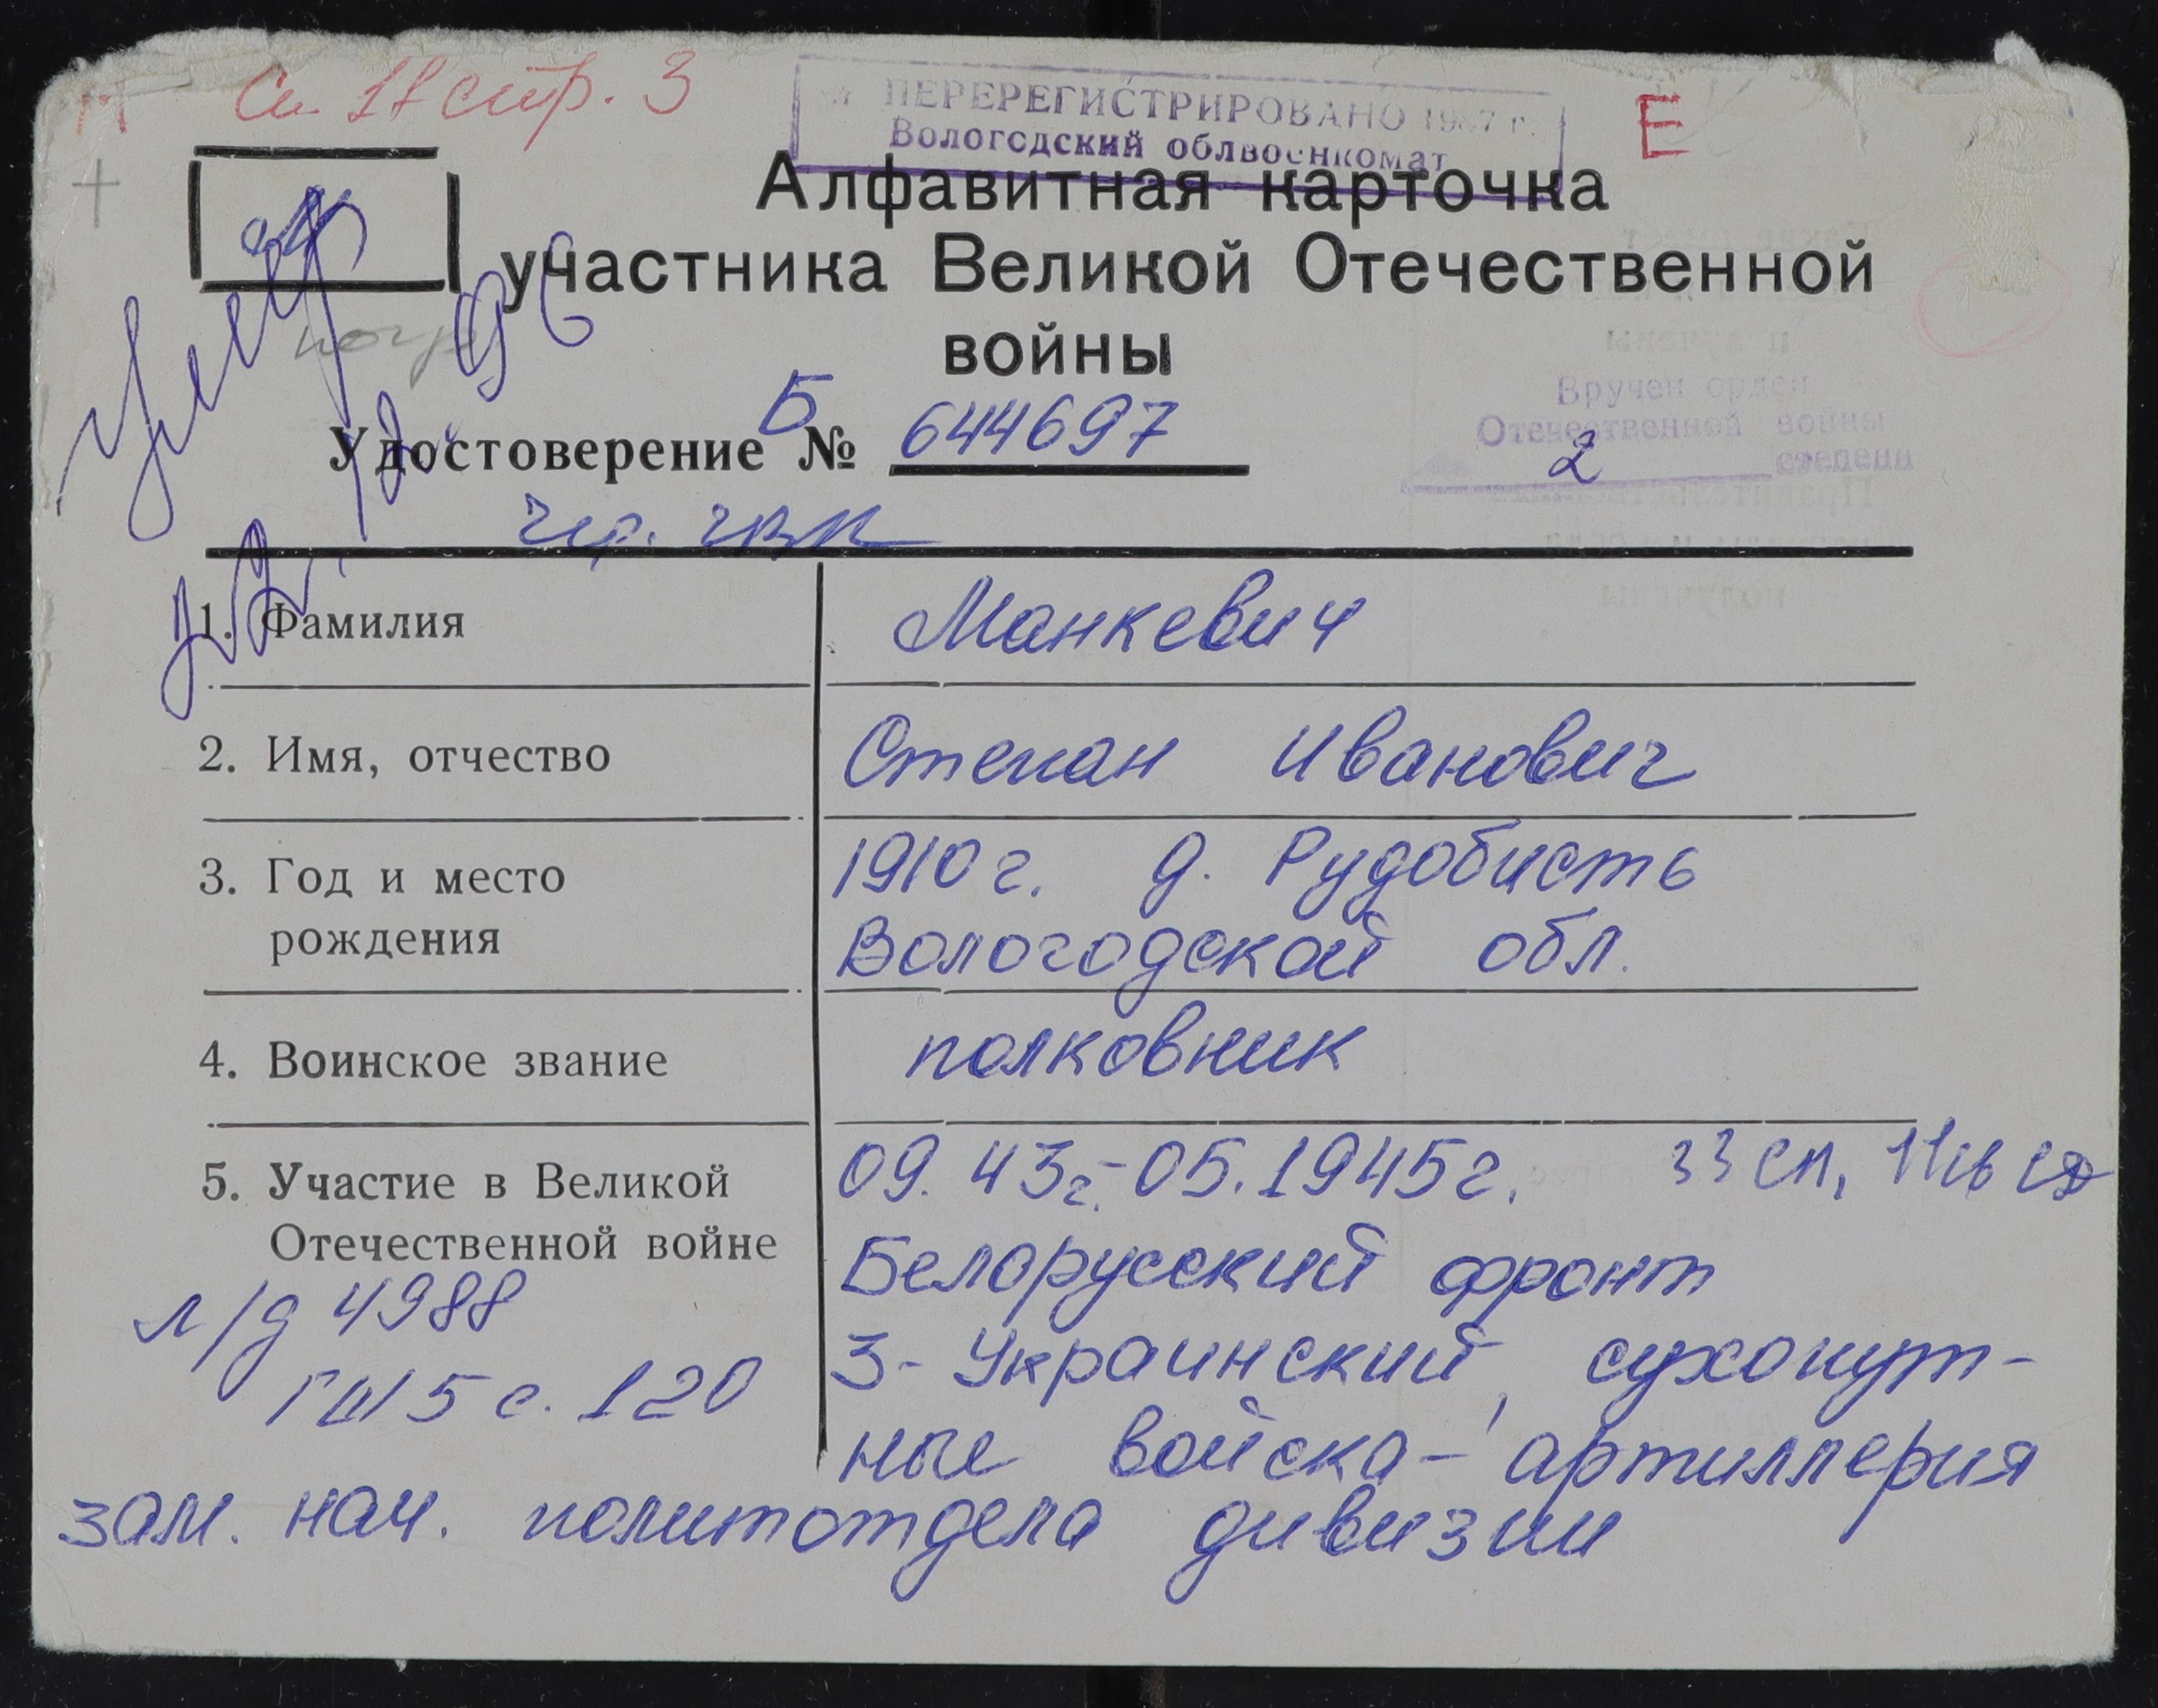 Сп. 17 стр. 3
ПЕРЕРЕГИСТРИРОВАНО 1987 г.
Вологодский облвоенкомат
Е
Алфавитная карточка
участника Великой Отечественной
войны
Умер
96
Вручен орден
Отечественной войны
2 степени
Удостоверение Б № 644697
1. Фамилия Манкевич
2. Имя, отчество Степан Иванович
3. Год и место рождения 1910 г. д. Рудобисть
Вологодской обл.
4. Воинское звание полковник
5. Участие в Великой Отечественной войне 09.43г.-05.1945г. 33 сп,
Белорусский фронт
3-Украинский, сухопут-
ные войска - артиллерия
зам. нач. политотдела дивизии
л/д 4988
с. 120